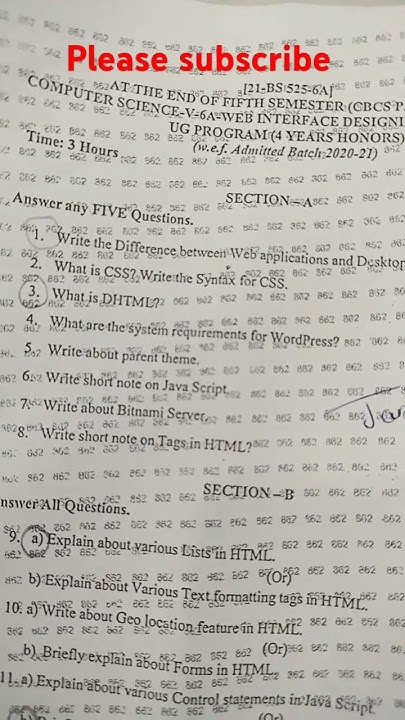 Please subscribe
[21-BS 525-6A]
AT THE END OF FIFTH SEMESTER (CBCS P
COMPUTER SCIENCE-V-6A-WEB INTERFACE DESIGNI
UG PROGRAM (4 YEARS HONORS)
Time: 3 Hours
(w.e.f. Admitted Batch 2020-21)
SECTION – A
Answer any FIVE Questions.
1. Write the Difference between Web applications and Desktop
2. What is CSS? Write the Syntax for CSS.
3. What is DHTML?
4. What are the system requirements for WordPress?
5. Write about parent theme.
6. Write short note on Java Script.
7. Write about Bitnami Server.
8. Write short note on Tags in HTML?
SECTION – B
nswer All Questions.
9. a) Explain about various Lists in HTML.
(Or)
b) Explain about Various Text formatting tags in HTML.
10. a) Write about Geo location feature in HTML.
(Or)
b) Briefly explain about Forms in HTML
11. a) Explain about various Control statements in Java Script.
(Or)